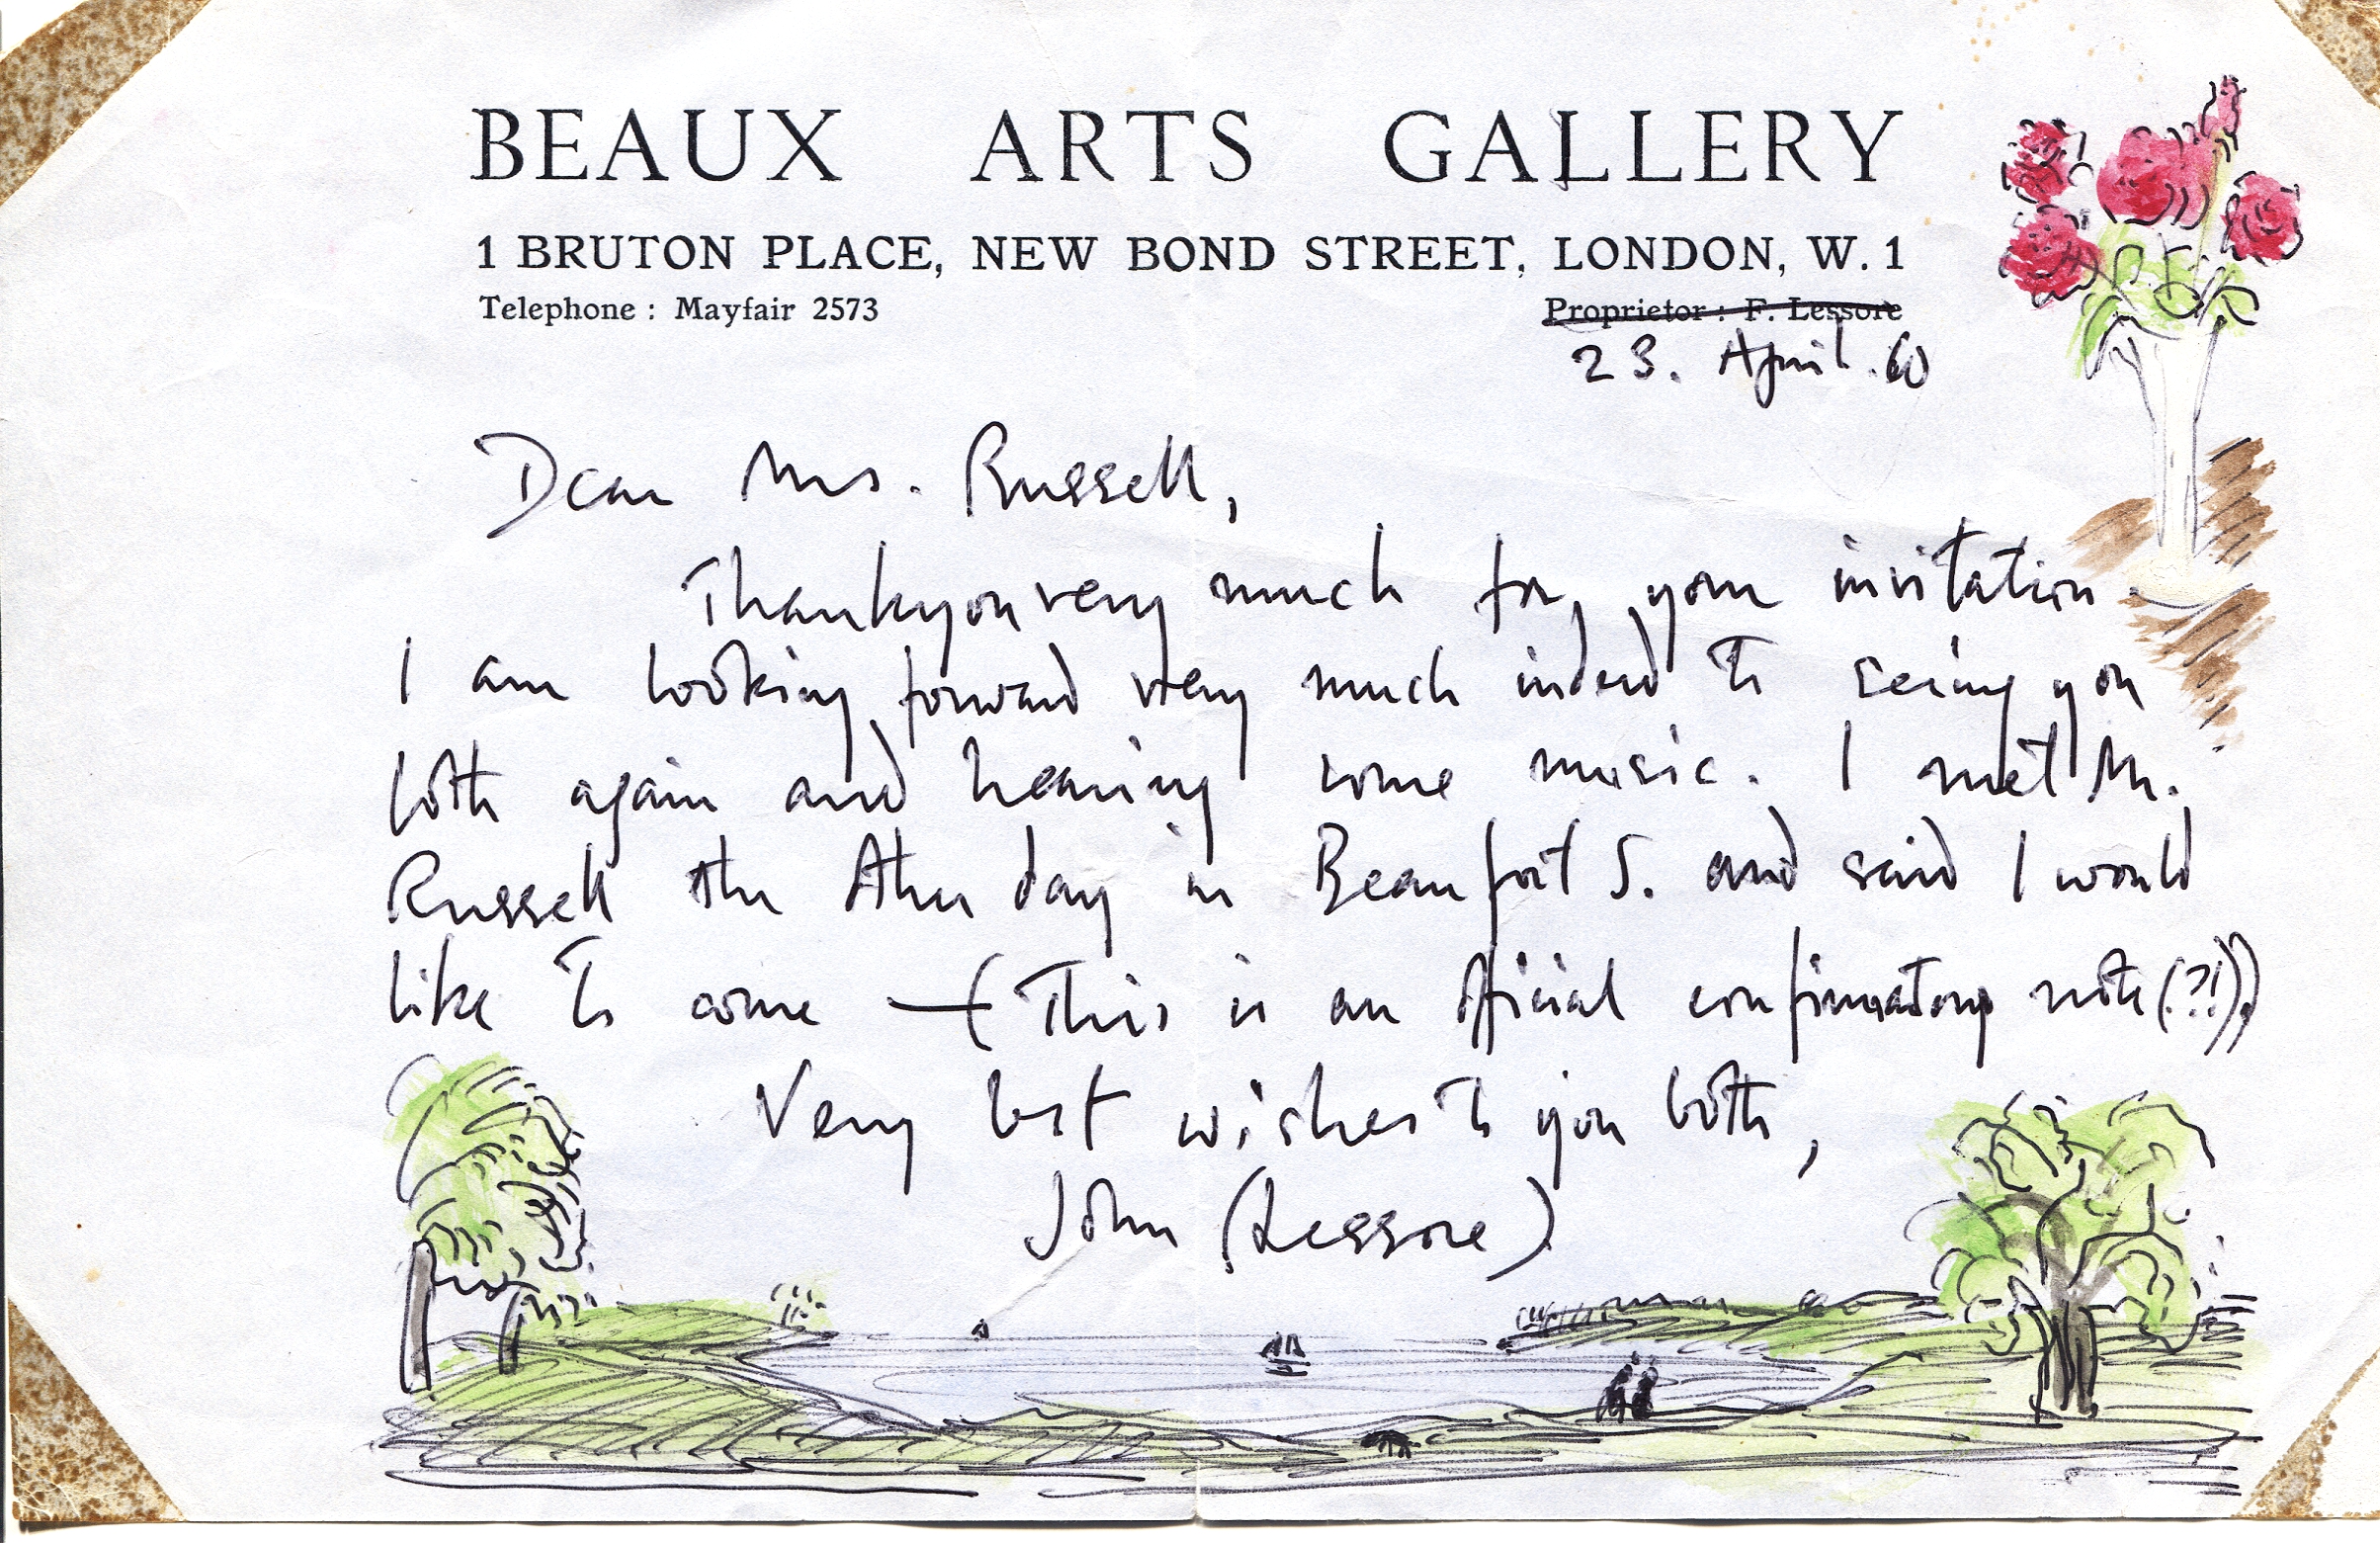 BEAUX ARTS GALLERY
1 BRUTON PLACE, NEW BOND STREET, LONDON, W.1
Telephone : Mayfair 2573
Proprietor : F. Lessore
23. April. 60
Dear Mrs. Russell,
Thankyou very much for your invitation.
I am looking forward very much indeed to seeing you
both again and hearing some music. I met Mr.
Russell the other day in Beaufort S. and said I would
like to come — (This is an official confirmatory note (?!))
Very best wishes to you both,
John (Lessore)